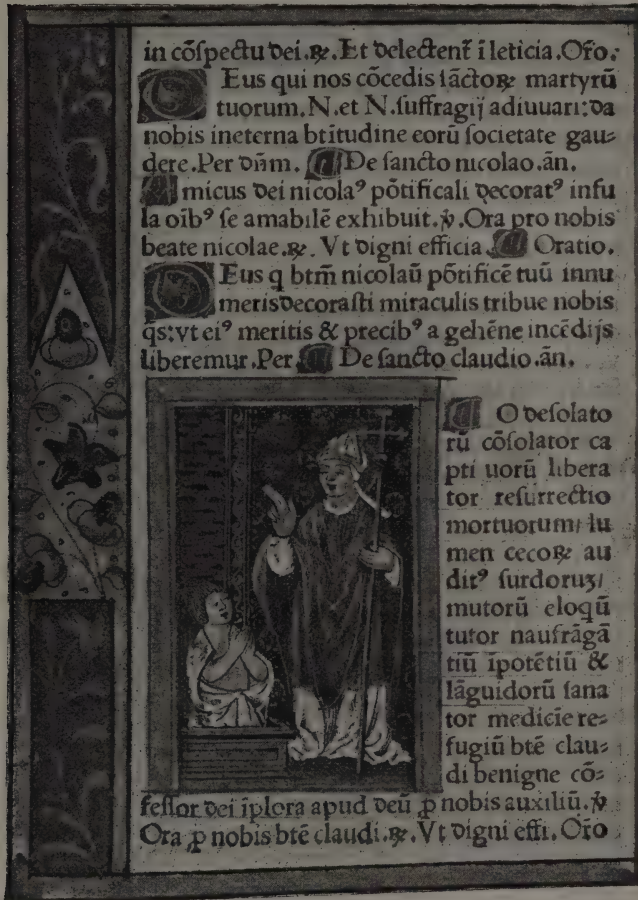 in cōſpectu dei.℞. Et delectent̄ ī leticia. Oro̅:
DEus qui nos cōcedis ſāctoꝝ martyrū
tuorum. N. et N. ſuffragiĳ adiuuari: da
nobis ineterna btītudine eorū ſocietate gau⸗
dere. Per dn̄m. De ſancto nicolao. ān.
Amicus dei nicolaꝰ pōtificali decoratꝰ inſu
la oībꝰ ſe amabilē exhibuit. ℣. Ora pro nobis
beate nicolae. ℞. Vt digni efficia. Oratio.
DEus q btm̄ nicolaū pōtificē tuū innu
meris decoraſti miraculis tribue nobis
q̄s: vt eiꝰ meritis & precibꝰ a gehēne incēdĳs
liberemur. Per De ſancto claudio. ān.
O deſolato
rū cōſolator ca
pti uorū libera
tor reſurrectio
mortuorum/ lu
men cecoꝝ au
ditꝰ ſurdoruꝫ/
mutorū eloqū
tutor naufrāgā
tiū īpotētiū &
lāguidorū ſana
tor medicīe re⸗
fugiū btē clau⸗
di benigne cō⸗
feſſor dei īplora apud deū ꝓ nobis auxiliū. ℣
Ora ꝓ nobis btē claudi. ℞. Vt digni effi. Oro̅